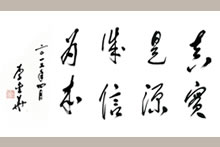 真实
是源
诚信
为本
二〇一五年四月
李金華